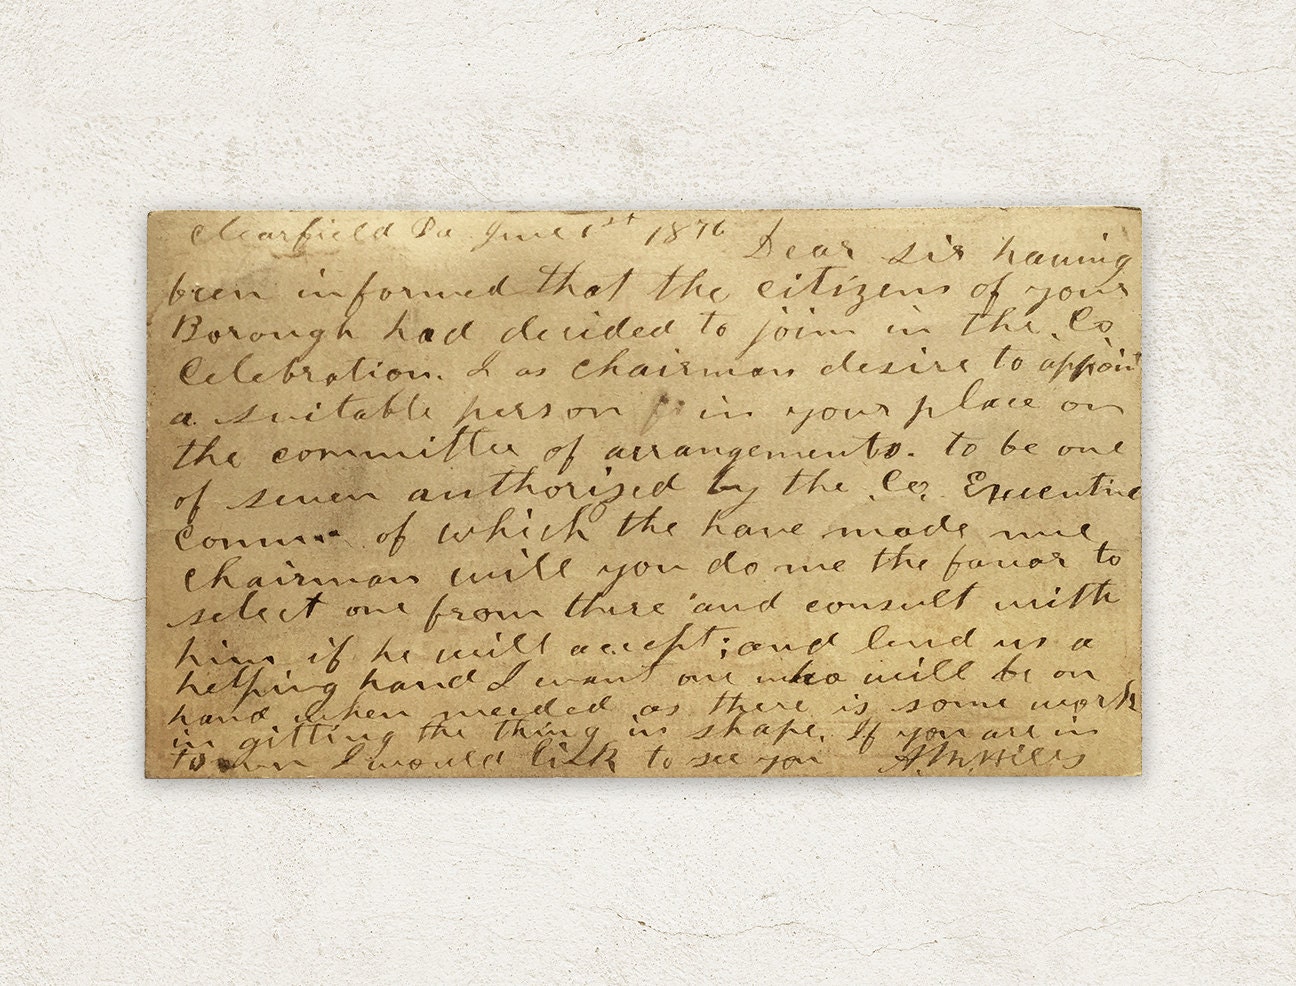 Clearfield Pa. June 1st 1876
Dear Sir having
been informed that the citizens of your
Borough had decided to join in the Co
Celebration. I as Chairman desire to appoint
a suitable person in your place on
the committee of arrangements. to be one
of seven authorized by the Co. Executive
Comm. of which the have made me
Chairman will you do me the favor to
select one from there and consult with
him if he will accept; and lend us a
helping hand I want one who will be on
hand when needed as there is some work
in gitting the thing in shape. If you are in
town I would like to see you A.M. Hills